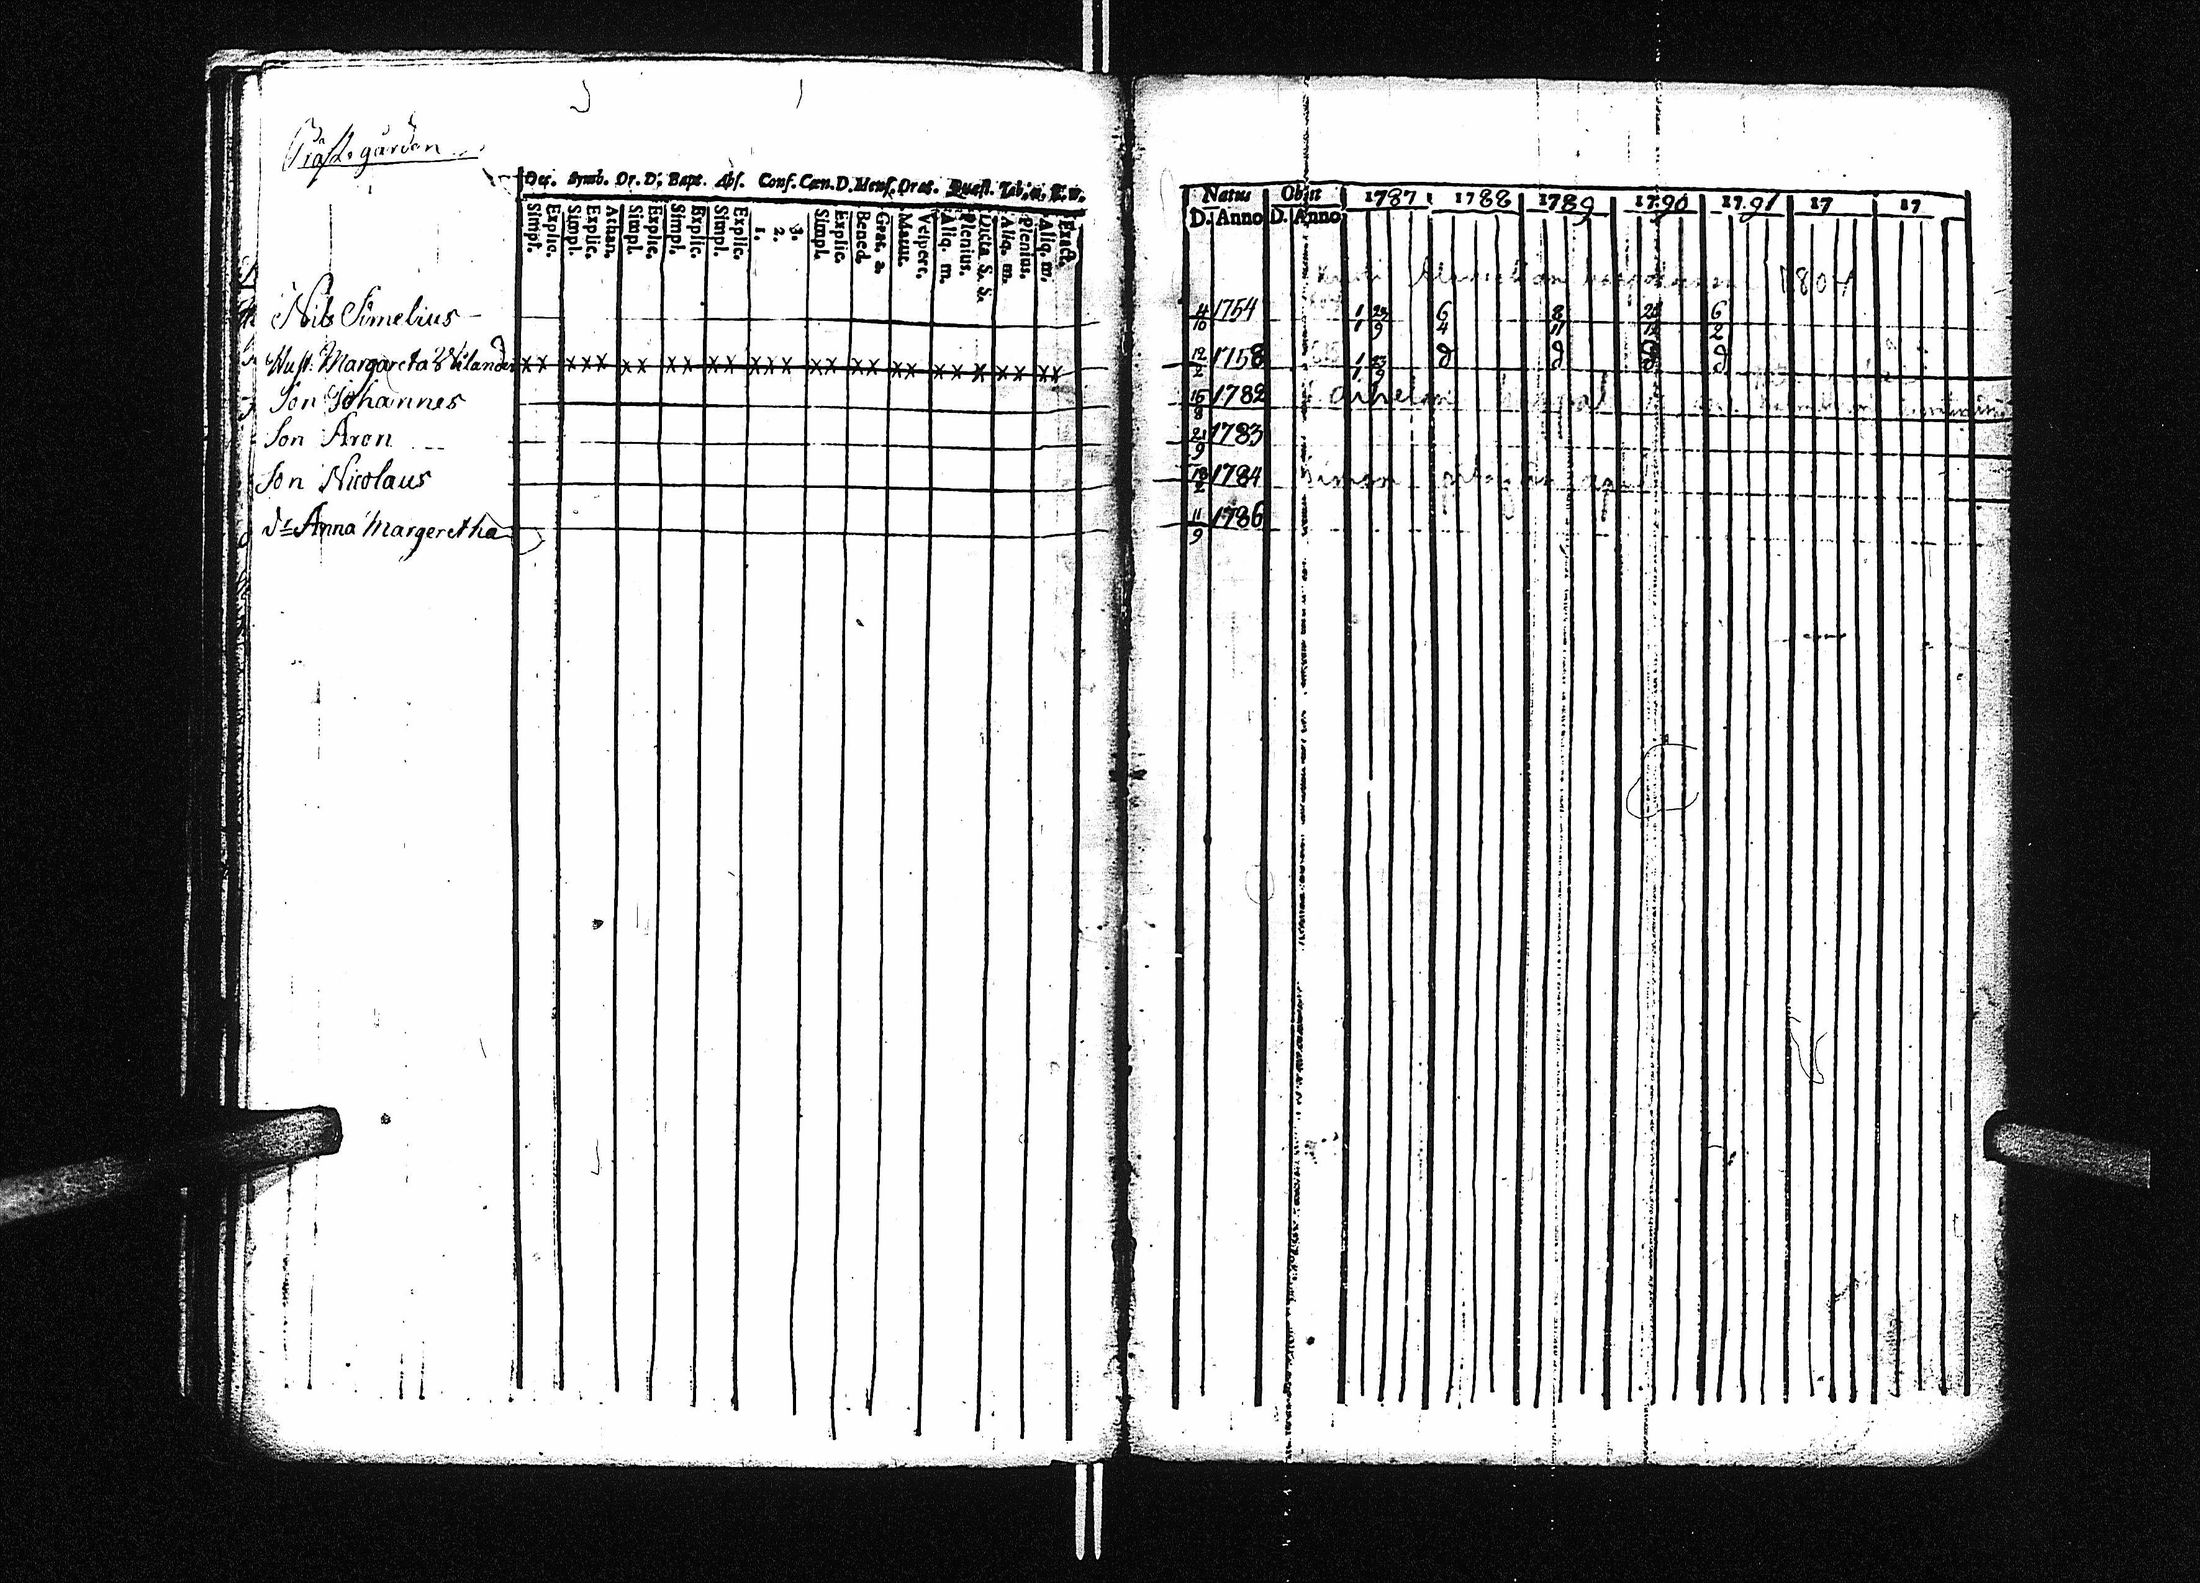 Prästegården
Dec. Symb. Or. D. Bapt. Abs. Conf. Cœn. D. Mens. Orat. Quæst. Tab. œ. E. w.
Simpl. Explic. Simpl. Explic. Athan. Simpl. Explic. Simpl. Explic. Simpl. Explic. 1. 2. 3. Simpl. Explic. Bened. Grat. a. Matut. Vespere. Aliq. m. Plenius. Dicta S. S. Aliq. m. Plenius. Aliq. m. Exact.
Nils Simelius
Hust. Margareta Wilander x x x x x x x x x x x x x x x x x x x x x x x x x x x
Son Johannes
Son Aron
Son Nicolaus
Dr Anna Margeretha
Natus Obiit 1787 1788 1789 1790 1791 17 17
D. Anno D. Anno
1804
4/10 1754 1/1 23/9 6/4 8/11 6/2
12/2 1758 1/1 23/9
16/8 1782
21/9 1783
1784
11/9 1786